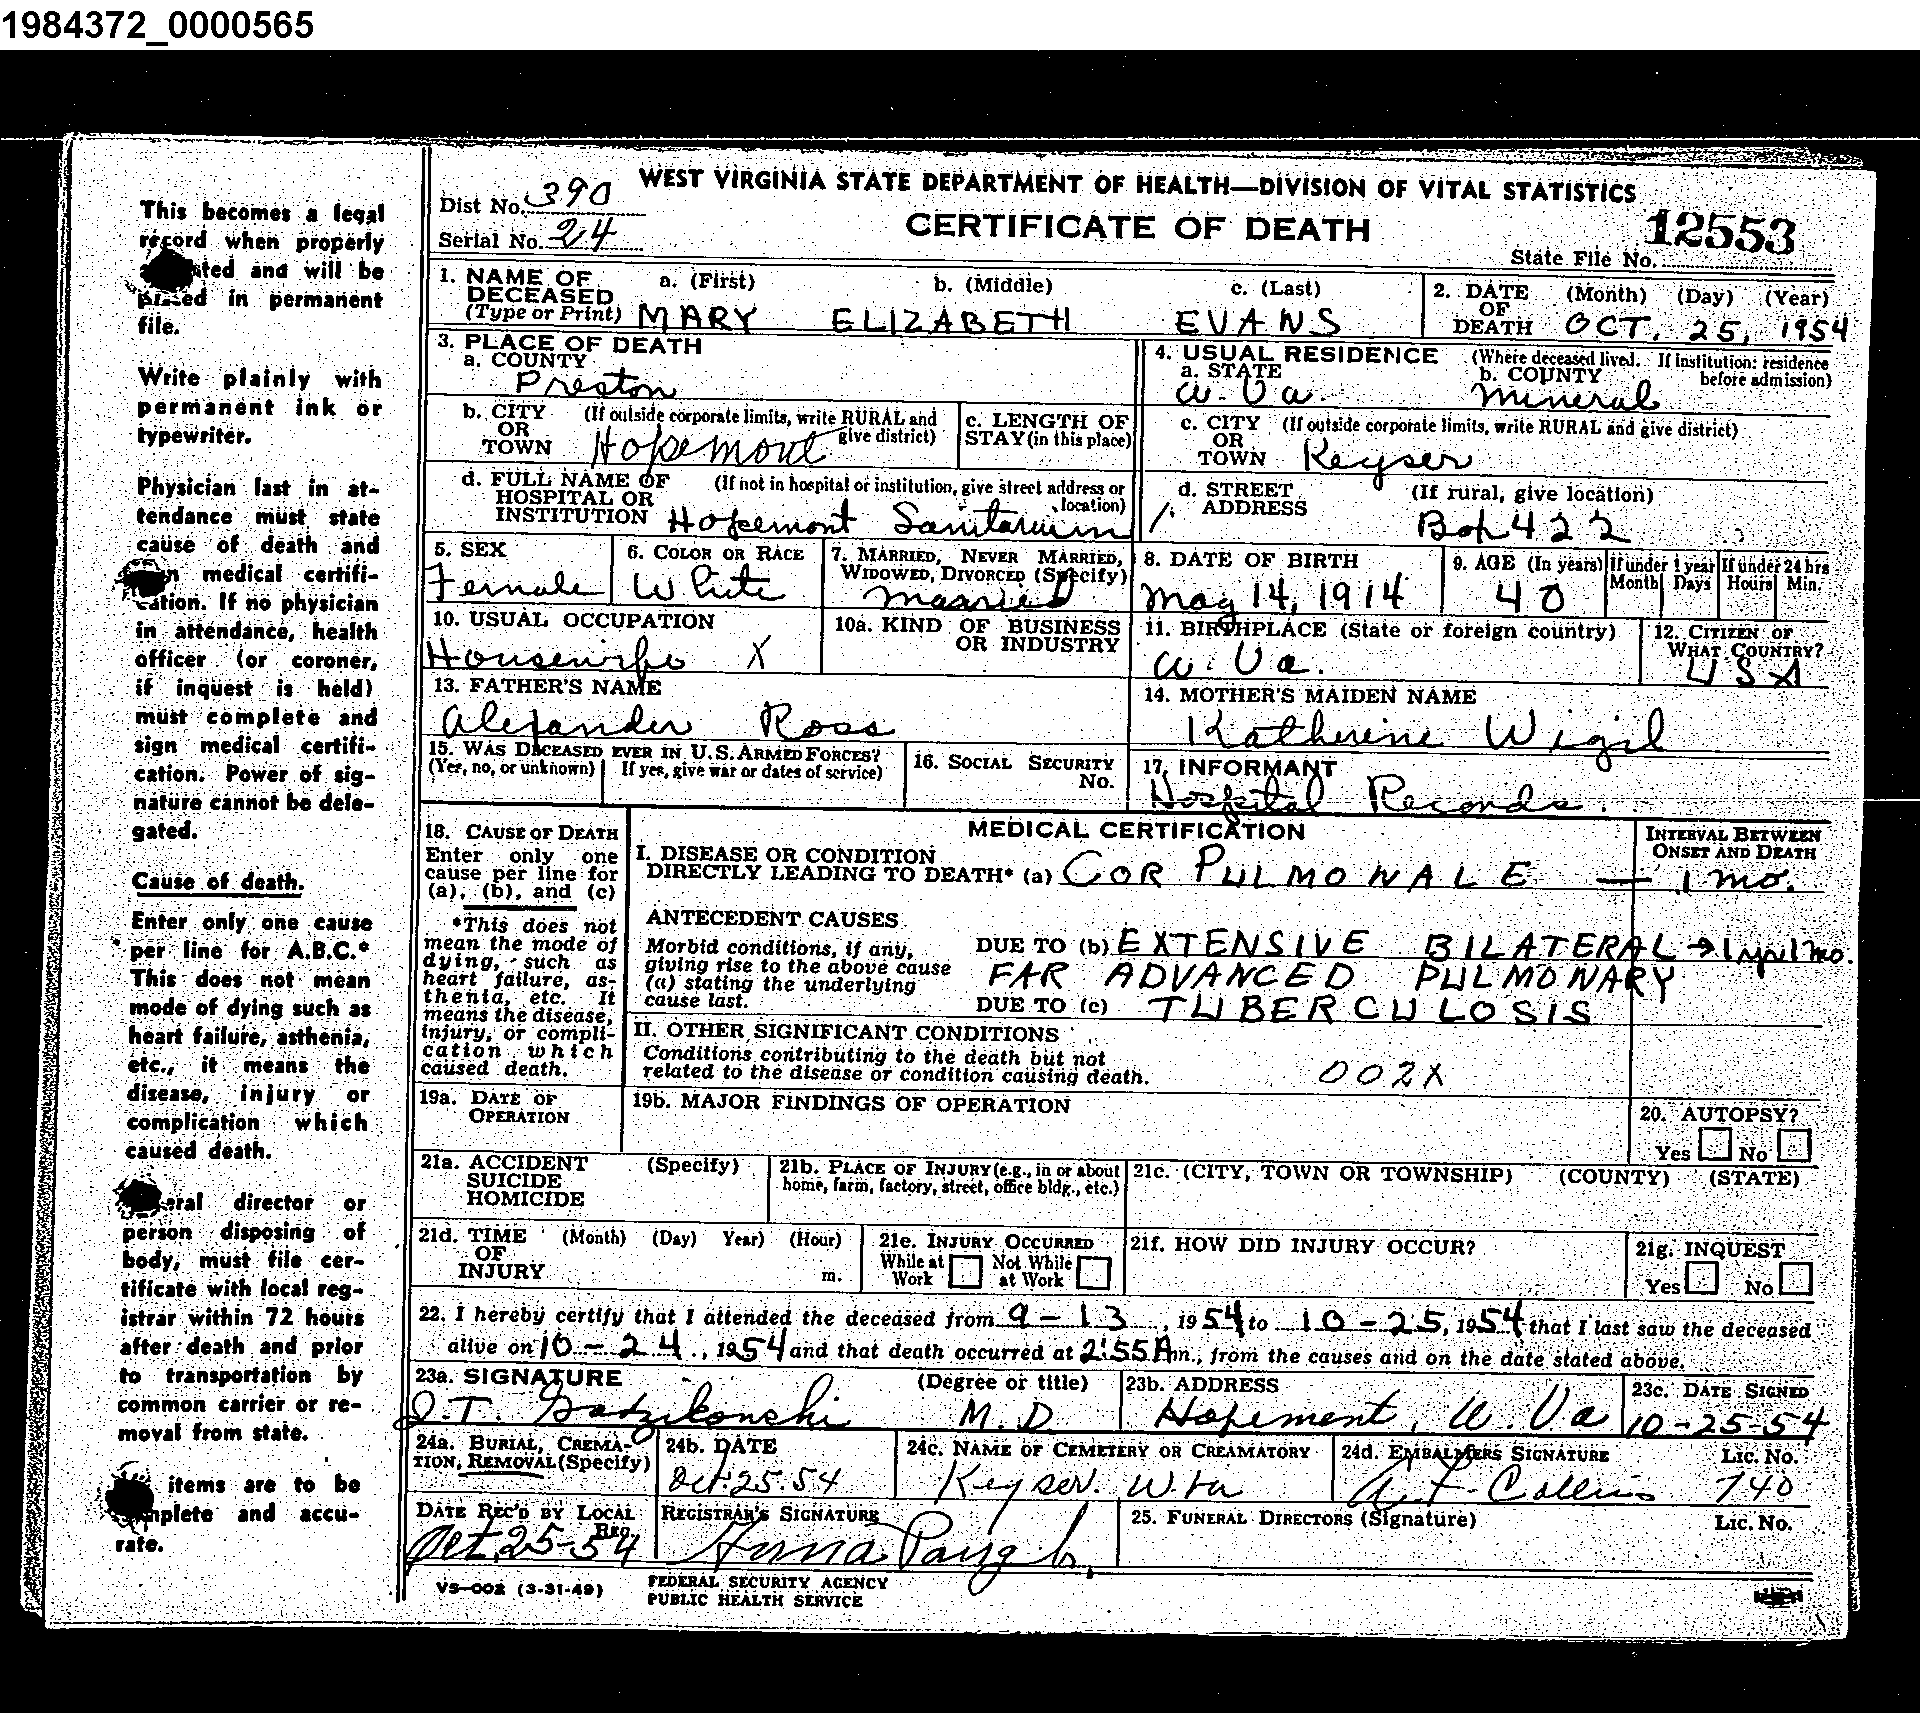 1984372_0000565
This becomes a legal
record when properly
and will be
placed in permanent
file.
Write plainly with
permanent ink or
typewriter.
Physician last in at-
tendance must state
cause of death and
medical certifi-
cation. If no physician
in attendance, health
officer (or coroner,
if inquest is held)
must complete and
sign medical certifi-
cation. Power of sig-
nature cannot be dele-
gated.
Cause of death.
Enter only one cause
per line for A.B.C.*
This does not mean
mode of dying such as
heart failure, asthenia,
etc., it means the
disease, injury or
complication which
caused death.
director or
person disposing of
body, must file cer-
tificate with local reg-
istrar within 72 hours
after death and prior
to transportation by
common carrier or re-
moval from state.
items are to be
and accu-
rate.
Dist No. 390
WEST VIRGINIA STATE DEPARTMENT OF HEALTH—DIVISION OF VITAL STATISTICS
Serial No. 24
CERTIFICATE OF DEATH
12553
State File No.
1. NAME OF DECEASED (Type or Print)
a. (First) b. (Middle) c. (Last)
MARY ELIZABETH EVANS
2. DATE OF DEATH (Month) (Day) (Year)
OCT. 25, 1954
3. PLACE OF DEATH
a. COUNTY
Preston
4. USUAL RESIDENCE (Where deceased lived. If institution: residence before admission)
a. STATE W. Va. b. COUNTY Mineral
b. CITY OR TOWN (If outside corporate limits, write RURAL and give district)
Hopemont
c. LENGTH OF STAY (in this place)
c. CITY OR TOWN (If outside corporate limits, write RURAL and give district)
Keyser
d. FULL NAME OF HOSPITAL OR INSTITUTION (If not in hospital or institution, give street address or location)
Hopemont Sanitarium
d. STREET ADDRESS (If rural, give location)
Box 422
5. SEX
Female
6. COLOR OR RACE
White
7. MARRIED, NEVER MARRIED, WIDOWED, DIVORCED (Specify)
Married
8. DATE OF BIRTH
May 14, 1914
9. AGE (In years)
40
If under 1 year
Month Days
If under 24 hrs
Hours Min.
10. USUAL OCCUPATION
Housewife X
10a. KIND OF BUSINESS OR INDUSTRY
11. BIRTHPLACE (State or foreign country)
W. Va.
12. CITIZEN OF WHAT COUNTRY?
USA
13. FATHER'S NAME
Alexander Ross
14. MOTHER'S MAIDEN NAME
Katherine Wigil
15. WAS DECEASED EVER IN U.S. ARMED FORCES?
(Yes, no, or unknown) If yes, give war or dates of service)
16. SOCIAL SECURITY No.
17. INFORMANT
Hospital Records.
18. CAUSE OF DEATH
Enter only one
cause per line for
(a), (b), and (c)
*This does not
mean the mode of
dying, such as
heart failure, as-
thenia, etc. It
means the disease,
injury, or compli-
cation which
caused death.
MEDICAL CERTIFICATION
INTERVAL BETWEEN ONSET AND DEATH
I. DISEASE OR CONDITION
DIRECTLY LEADING TO DEATH* (a) COR PULMONALE — 1 mo.
ANTECEDENT CAUSES
Morbid conditions, if any,
giving rise to the above cause
(a) stating the underlying
cause last.
DUE TO (b) EXTENSIVE BILATERAL → 1 yr 1 mo.
FAR ADVANCED PULMONARY
DUE TO (c) TUBERCULOSIS
II. OTHER SIGNIFICANT CONDITIONS
Conditions contributing to the death but not
related to the disease or condition causing death.
002X
19a. DATE OF OPERATION
19b. MAJOR FINDINGS OF OPERATION
20. AUTOPSY?
Yes No
21a. ACCIDENT SUICIDE HOMICIDE (Specify)
21b. PLACE OF INJURY (e.g., in or about home, farm, factory, street, office bldg., etc.)
21c. (CITY, TOWN OR TOWNSHIP) (COUNTY) (STATE)
21d. TIME OF INJURY (Month) (Day) Year) (Hour) m.
21e. INJURY OCCURRED
While at Work Not While at Work
21f. HOW DID INJURY OCCUR?
21g. INQUEST
Yes No
22. I hereby certify that I attended the deceased from 9-13, 1954 to 10-25, 1954 that I last saw the deceased
alive on 10-24, 1954 and that death occurred at 2:55 A m., from the causes and on the date stated above.
23a. SIGNATURE (Degree or title)
M.D.
23b. ADDRESS
Hopemont, W. Va
23c. DATE SIGNED
10-25-54
24a. BURIAL, CREMA-
TION, REMOVAL (Specify)
24b. DATE
Oct. 25. 54
24c. NAME OF CEMETERY OR CREAMATORY
Keyser. W. Va
24d. EMBALMERS SIGNATURE Lic. No.
A. F. Collins 740
DATE REC'D BY LOCAL REG.
Oct 25-54
REGISTRAR'S SIGNATURE
Anna
25. FUNERAL DIRECTORS (Signature) Lic. No.
VS-002 (3-31-49)
FEDERAL SECURITY AGENCY
PUBLIC HEALTH SERVICE